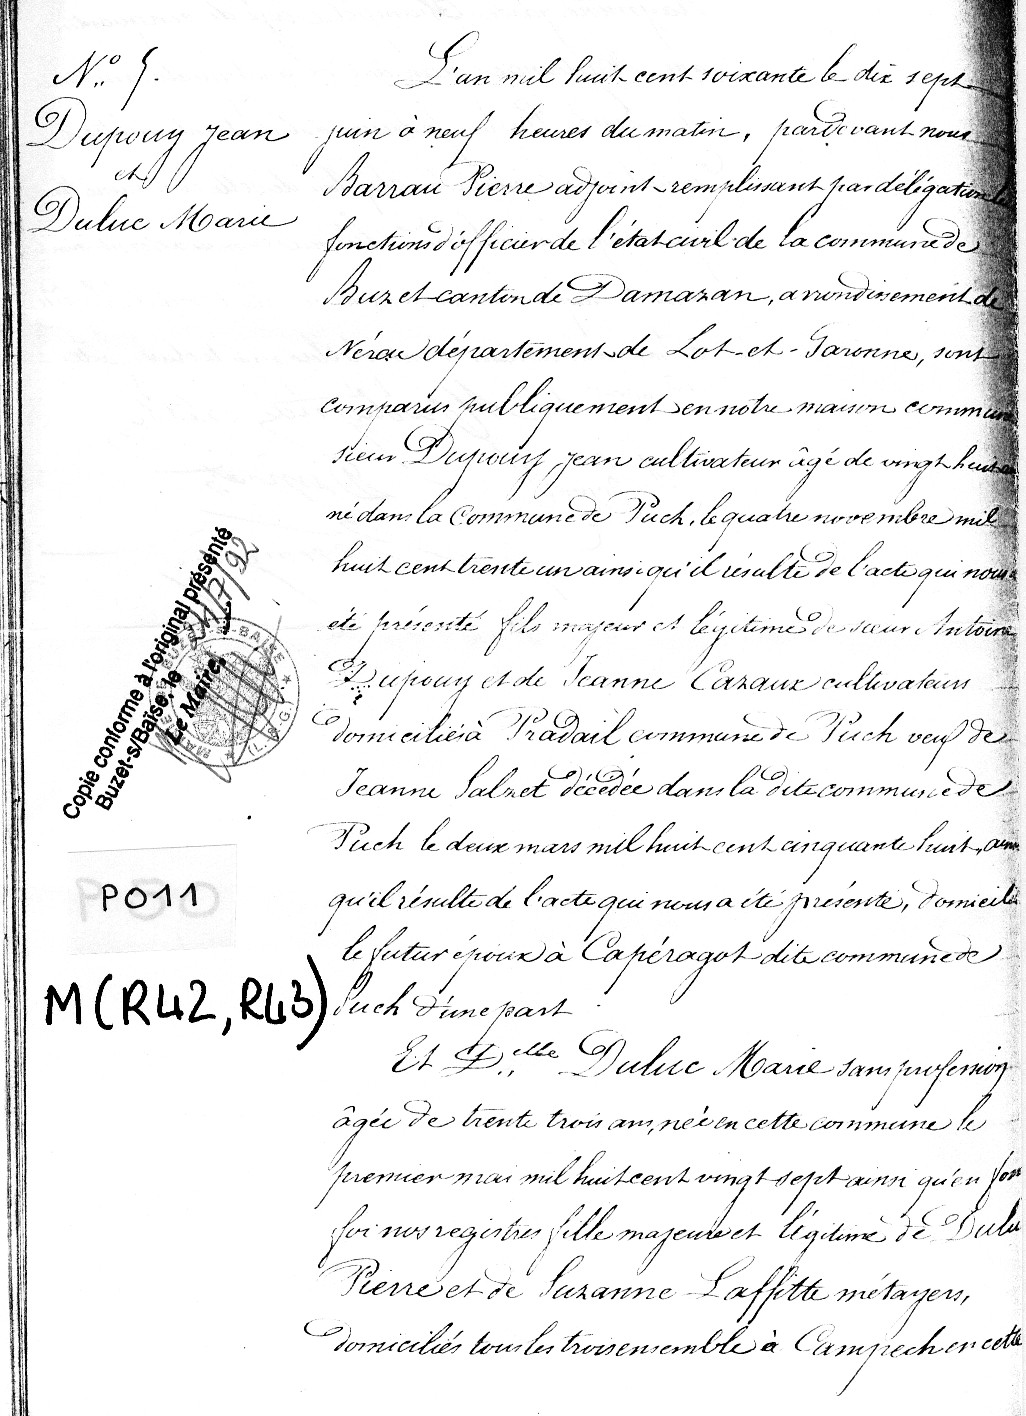 N.o 5.
Dupouy Jean
et
Duluc Marie
L'an mil huit cent soixante le dix sept
juin à neuf heures du matin, pardevant nous
Barrau Pierre adjoint remplissant par délégation les
fonctions d'officier de l'état civil de la commune de
Buzet canton de Damazan, arrondissement de
Nérac département de Lot-et-Garonne, sont
comparus publiquement en notre maison commune
sieur Dupouy Jean cultivateur âgé de vingt huit
né dans la commune de Puch, le quatre novembre mil
huit cent trente un ainsi qu'il résulte de l'acte qui nous a
été présenté fils majeur et légitime de sieur Antoine
Dupouy et de Jeanne Cazaux cultivateurs
domiciliés à Pradail commune de Puch veuf de
Jeanne Salzet décédée dans la dite commune de
Puch le deux mars mil huit cent cinquante huit, ainsi
qu'il résulte de l'acte qui nous a été présenté, domicilié
le futur époux à Capéragot dite commune de
Puch d'une part
Et D.elle Duluc Marie sans profession
âgée de trente trois ans, née en cette commune le
premier mai mil huit cent vingt sept ainsi qu'en font
foi nos registres fille majeure et légitime de Duluc
Pierre et de Suzanne Laffitte métayers,
domiciliés tous les trois ensemble à Campech en cette
Copie conforme à l'original présenté
Buzet-s/Baïse, le 21/7/92
Le Maire,
MAIRIE DE BUZET-S-BAISE
(L.-&-G.)
P011
M(R42, R43)